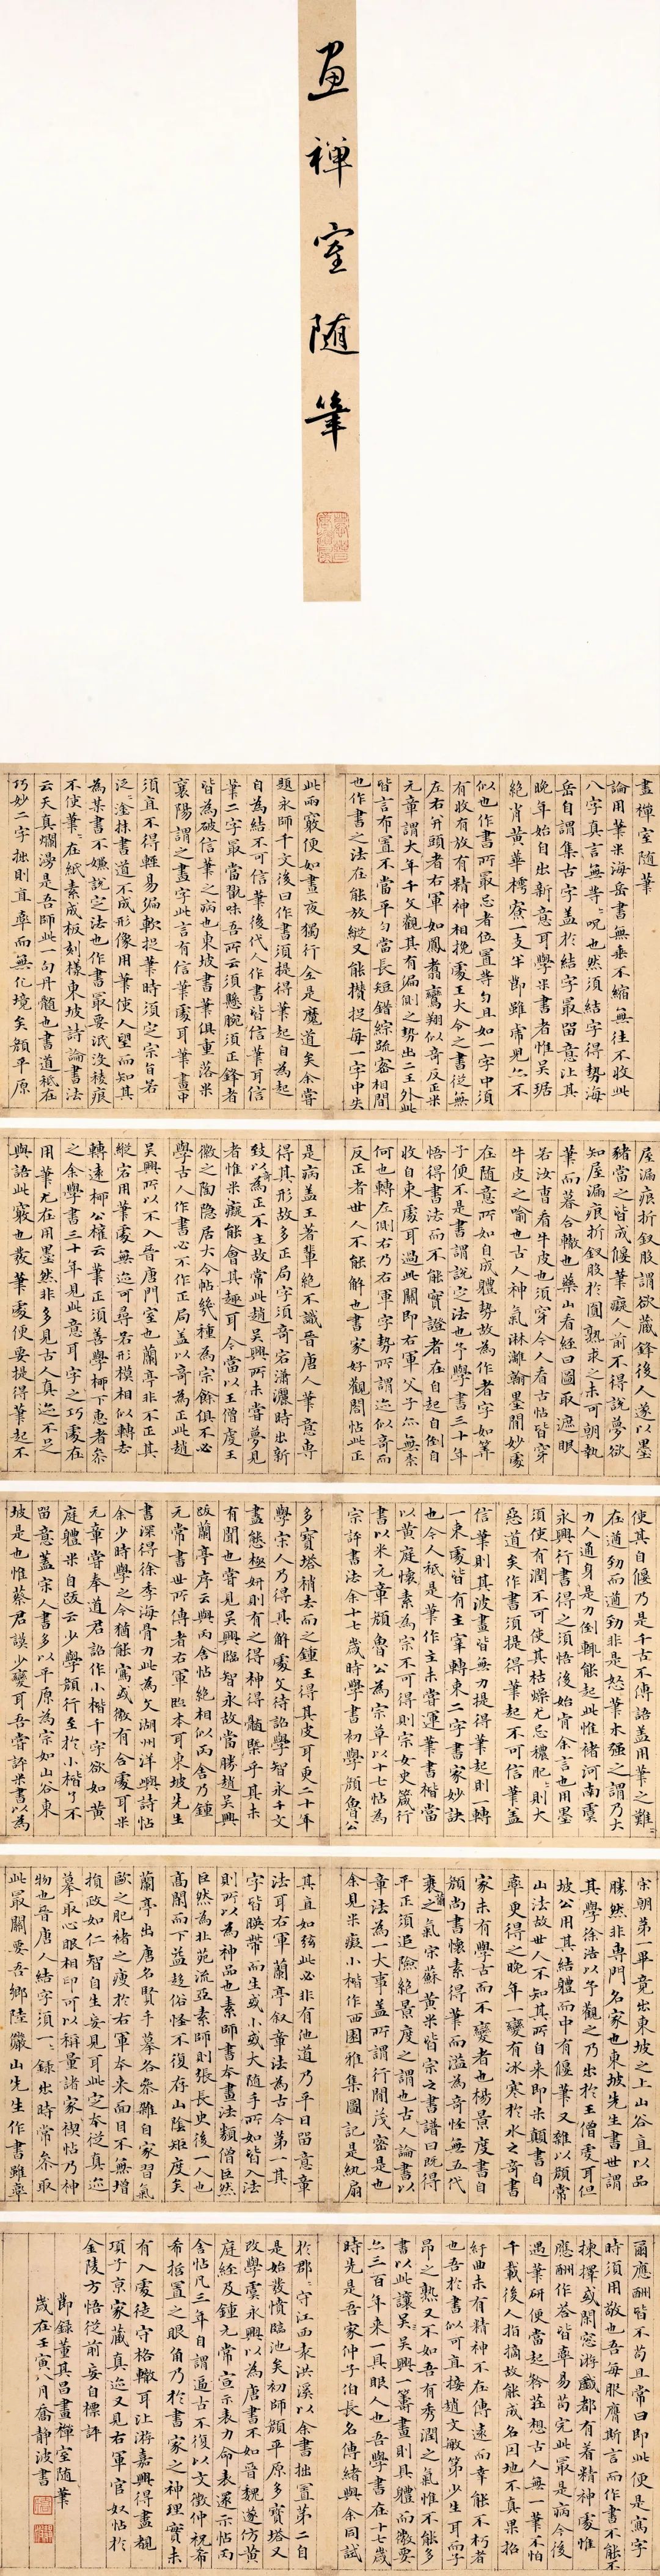 畫禪室随筆
畫禪室随筆
論用筆米海岳書無垂不縮無往不收此
八字真言無等〻呪也然須結字得勢海
岳自謂集古字蓋於結字最留意让其
晚年始自出新意耳學米書者惟吳琚
絶肖黃華樗寮一支半節雖虎兒亦不
似也作書所最忌者位置等勻且如一字中須
有收有放有精神相挽處王大令之書從無
左右并頭者右軍如鳳翥鸞翔似奇反正米
元章謂大年千文觀其有偏側之勢出二王外此
皆言布置不當平勻當長短錯綜疏密相間
也作書之法在能放縱又能攢捉每一字中失
此兩竅便如晝夜獨行全是魔道矣余嘗
題永師千文後曰作書須提得筆起自為起
自為結不可信筆後代人作書皆信筆耳信
筆二字最當翫味吾所云須懸腕須正鋒者
皆為破信筆之病也東坡書筆俱重落米
襄陽謂之畫字此言有信筆處耳筆畫中
須直不得輕易偏軟捉筆時須定宗旨若
泛〻塗抹書道不成形像用筆使人望而知其
為某書不嫌說定法也作書最要泯沒稜痕
不使筆〻在紙素成板刻樣東坡詩論書法
云天真爛漫是吾師此一句丹髓也書道衹在
巧妙二字拙則直率而無化境矣顏平原
屋漏痕折釵股謂欲藏鋒後人遂以墨
豬當之皆成偃筆癡人前不得說夢欲
知屋漏痕折釵股於圓熟求之未可朝執
筆而暮合轍也藥山看經曰圖取遮眼
若汝曹看牛皮也須穿今人看古帖皆穿
牛皮之喻也古人神氣淋漓翰墨間妙處
在隨意所如自成體勢故為作者字如筭
子便不是書謂說定法也予學書三十年
悟得書法而不能實證者在自起自倒自
收自束處耳過此關即右軍父子亦無柰
何也轉左側右乃右軍字勢所謂迹似奇而
反正者世人不能解也書家好觀閣帖此正
是病蓋王著輩絶不識晉唐人筆意專
得其形故多正局字須奇宕瀟灑時出新
致以奇為正不主故常此趙吳興所未嘗夢見
者惟米癡能會其趣耳今當以王僧虔王
徽之陶隱居大令帖幾種為宗餘俱不必
學古人作書必不作正局蓋以奇為正此趙
吳興所以不入晉唐門室也蘭亭非不正其
縱宕用筆處無迹可尋若形模相似轉去
轉遠柳公權云筆正須善學柳下惠者參
之余學書三十年見此意耳字之巧處在
用筆尤在用墨然非多見古人真迹不足
與語此竅也發筆處便要提得筆起不
使其自偃乃是千古不傳語蓋用筆之難〻
在遒勁而遒勁非是怒筆木强之謂乃大
力人通身是力倒輒能起此惟褚河南虞
永興行書得之須悟後始肯余言也用墨
須使有潤不可使其枯燥尤忌穠肥〻則大
惡道矣作書須提得筆起不可信筆蓋
信筆則其波畫皆無力提得筆起則一轉
一束處皆有主宰轉束二字書家妙訣
也今人衹是筆作主未嘗運筆書楷當
以黃庭懷素為宗不可得則宗女史箴行
書以米元章顏魯公為宗草以十七帖為
宗評書法余十七歲時學書初學顏魯公
多寶塔稍去而之鍾王得其皮耳更二十年
學宋人乃得其解處文待詔學智永千文
盡態極妍則有之得神得髓槩乎其未
有聞也嘗見吳興臨智永故當勝趙吳興
跋蘭亭序云與丙舍帖絶相似丙舍乃鍾
元常書世所傳者右軍臨本耳東坡先生
書深得徐季海骨力此為文湖州洋嶼詩帖
余少時學之今猶能寫或微有合處耳米
元章嘗奉道君詔作小楷千字欲如黃
庭體米自跋云少學顏行至於小楷了不
留意蓋宋人書多以平原為宗如山谷東
坡是也惟蔡君謨少變耳吾嘗評米書以為
宋朝第一畢竟出東坡之上山谷直以品
勝然非專門名家也東坡先生書世謂
其學徐浩以予觀之乃出於王僧虔耳但
坡公用其結體而中有偃筆又雜以顏常
山法故世人不知其所自来即米顛書自
率更得之晚年一變有冰寒於水之奇書
家未有學古而不變者也楊景度書自
顏尚書懷素得筆而溢為奇怪無五代
衰薾之氣宗蘇黃米皆宗之書譜曰既得
平正須追險絶景度之謂也古人論書以
章法為一大事蓋所謂行間茂密是也
余見米癡小楷作西園雅集圖記是紈扇
其直如弦此必非有他道乃平日留意章
法耳右軍蘭亭叙章法為古今第一其
字皆暎帶而生或小或大随手所如皆入法
則所以為神品也素師書本畫法類僧巨然
巨然為北苑流亞素師則張長史後一人也
高閑而下益趨俗怪不復存山陰矩度矣
蘭亭出唐名賢手摹各參雜自家習氣
歐之肥褚之瘦於右軍本来面目不無增
損政如仁智自生妄見耳此定本從真迹
摹取心眼相印可以稱量諸家禊帖乃神
物也晉唐人結字須一〻錄出時常參取
此最關要吾鄉陸儼山先生作書雖率
爾應酬皆不苟且常曰即此便是寫字
時須用敬也吾每服膺斯言而作書不能不
揀擇或閑窓游戲都有着精神處惟
應酬作荅皆率易苟完此最是病今後
遇筆研便當起矜莊想古人無一筆不怕
千載後人指摘故能成名因地不真果招
紆曲未有精神不在傳遠而幸能不朽者
也吾於書似可直接趙文敏第少生耳而子
昂之熟又不如吾有秀潤之氣惟不能多
書以此讓吳興一籌畫則具體而微要
亦三百年来一具眼人也吾學書在十七歲
時先是吾家仲子伯長名傳緒與余同試
於郡〻守江西袁洪溪以余書拙置第二自
是始發憤臨池矣初師顏平原多寶塔又
改學虞永興以為唐書不如晉魏遂仿黃
庭經及鍾元常宣示表力命表還示帖丙
舍帖凡三年自謂逼古不復以文徵仲祝希
哲置之眼角乃於書家之神理實未
有入處徒守格轍耳比游嘉興得盡覩
項子京家藏真迹又見右軍官奴帖於
金陵方悟從前妄自標評
節録董其昌畫禪室随筆
歲在壬寅八月喬靜波書